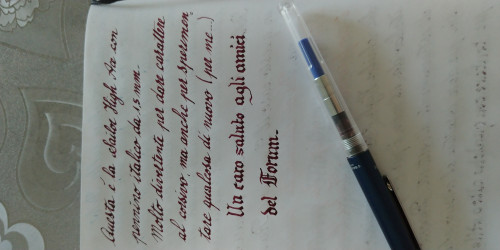 Questa é la Sailor High Ace con
pennino italico da 1.5 mm.
Molto divertente per dare carattere
al corsivo, ma anche per sperimen-
tare qualcosa di nuovo (per me...)
Un caro saluto agli amici
del Forum.